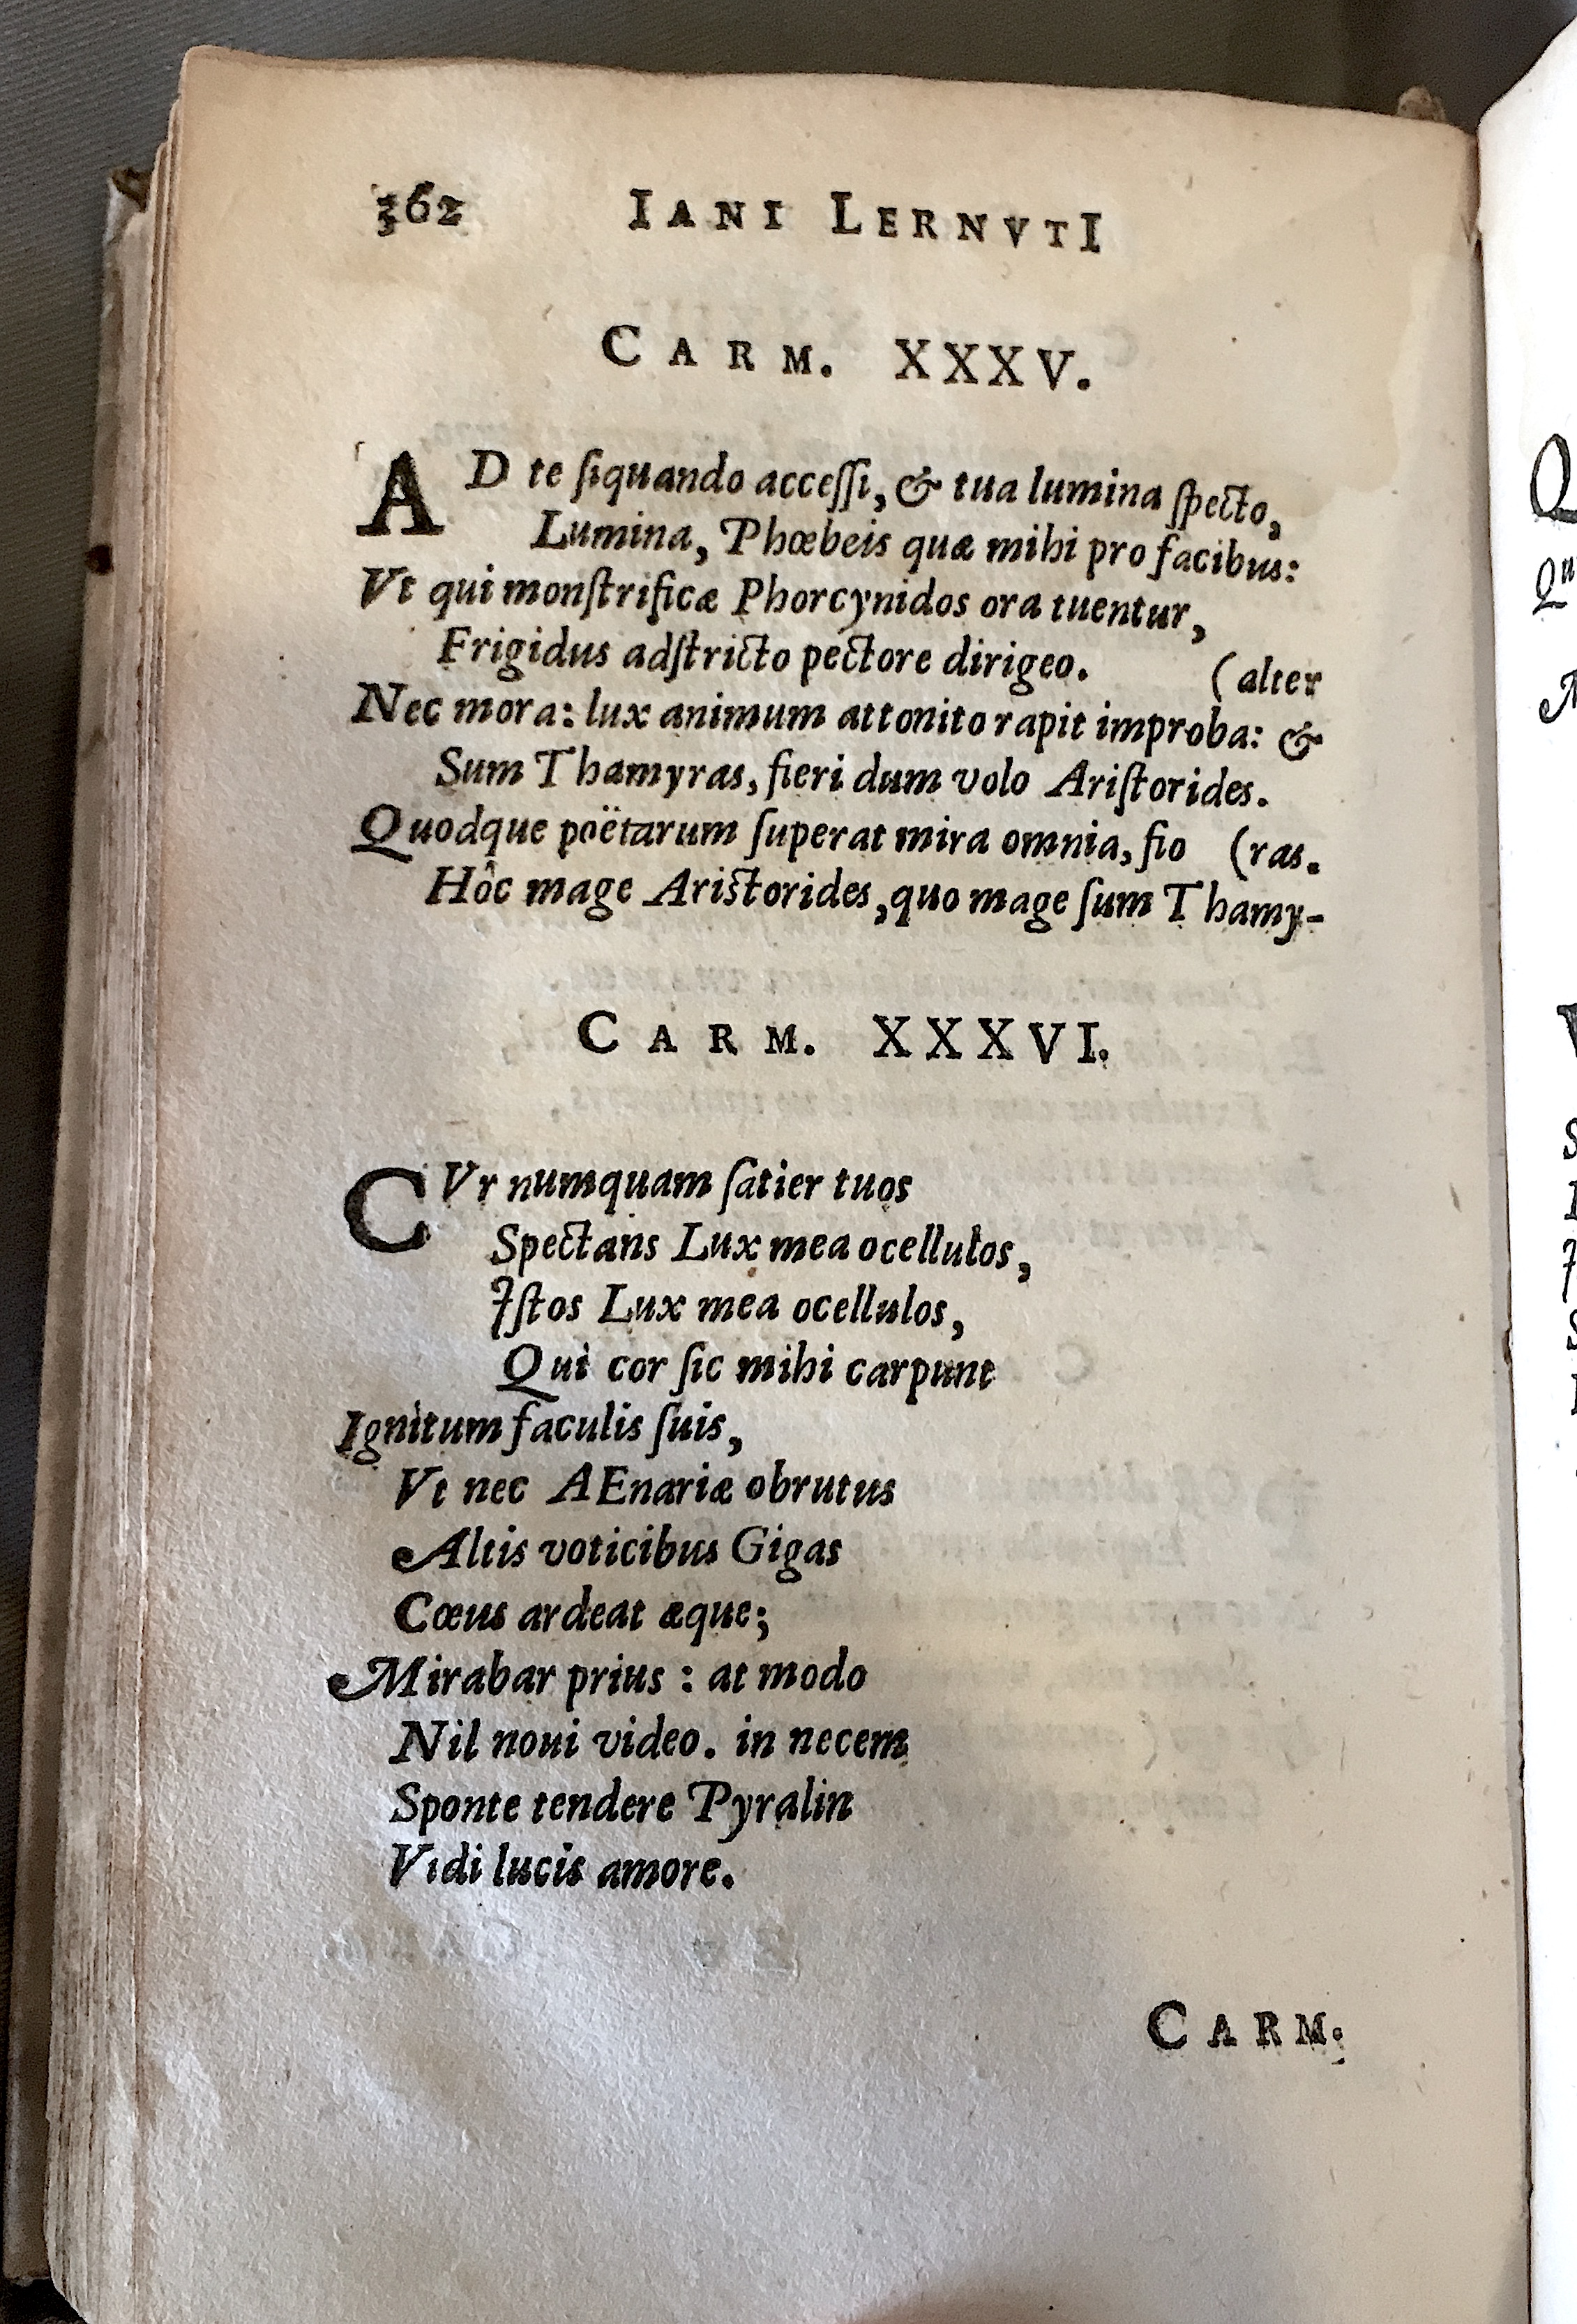 362 IANI LERNVTI
CARM. XXXV.
AD te ſiquando acceſſi, & tua lumina ſpecto,
Lumina, Phœbeis quæ mihi pro facibus:
Vt qui monſtrificæ Phorcynidos ora tuentur,
Frigidus adſtricto pectore dirigeo. (alter
Nec mora: lux animum attonito rapit improba: &
Sum Thamyras, fieri dum volo Ariſtorides.
Quodque poëtarum ſuperat mira omnia, fio (ras.
Hôc mage Ariſtorides, quo mage ſum Thamy-
CARM. XXXVI.
CVr numquam ſatier tuos
Spectans Lux mea ocellulos,
Iſtos Lux mea ocellulos,
Qui cor ſic mihi carpunt
Ignitum faculis ſuis,
Vt nec AEnariæ obrutus
Altis voticibus Gigas
Cœus ardeat æque;
Mirabar prius : at modo
Nil noui video. in necem
Sponte tendere Pyralin
Vidi lucis amore.
CARM.